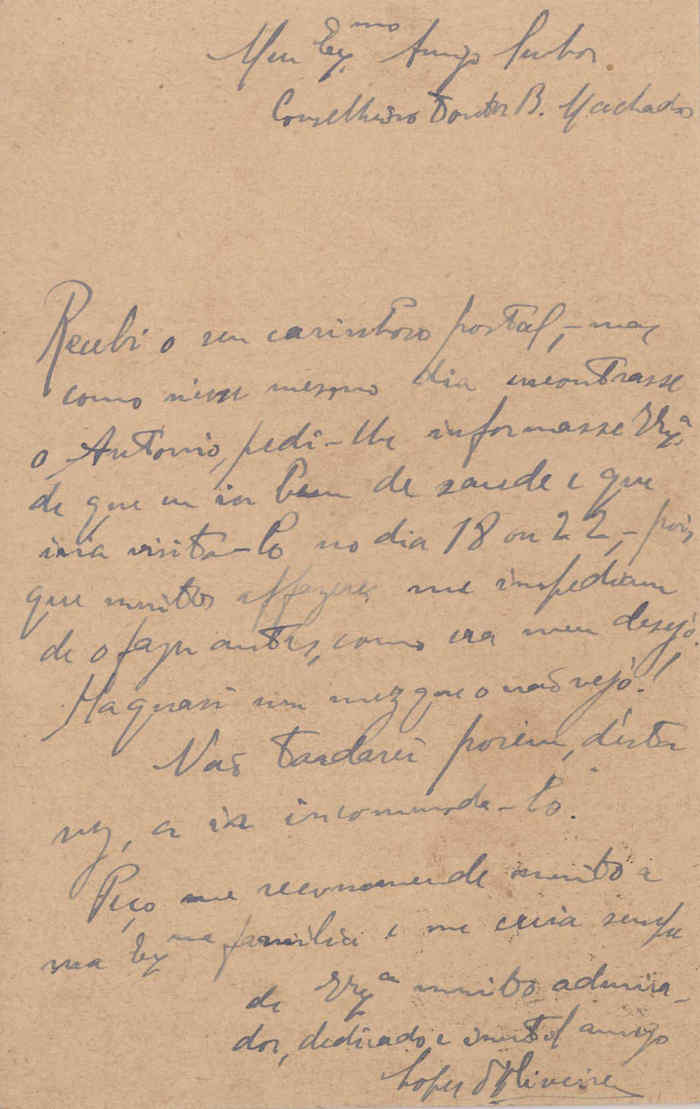 Meu Exmo Amigo Senhor
Conselheiro Doutor B. Machado
Recebi o seu carinhoso postal, - mas
como nesse mesmo dia encontrasse
o Antonio, pedi-lhe informasse VExa
de que eu ia bem de saude e que
iria visita-lo no dia 18 ou 22, - pois
que muitos affazeres me impediam
de o fazer antes, como era meu desejo.
Ha quasi um mez que o não vejo!
Não tardarei porém, d'esta
vez, a ir incommoda-lo.
Peço me recommende muito a
sua Exma familia e me creia sempre
de VExa muito admira-
dor, dedicado e amigo
Lopes d'Oliveira